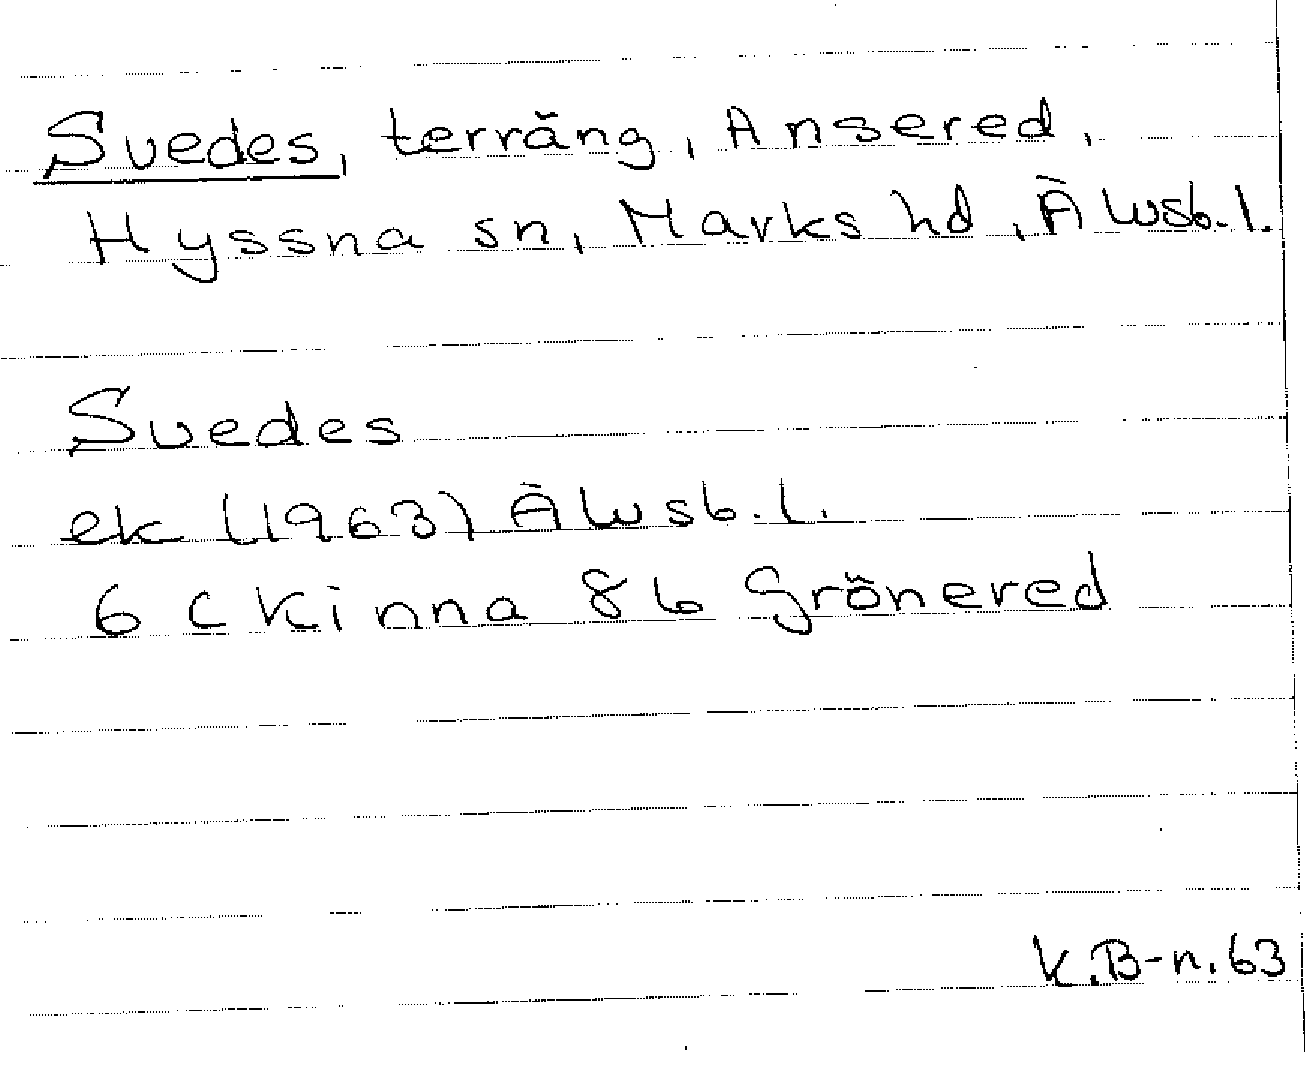 Svedes, terräng, Ansered,
Hyssna sn, Marks hd, Älvsb.l.
Svedes
ek (1963) Älvsb.l.
6 C Kinna 8b Grönered
K.B-n.63